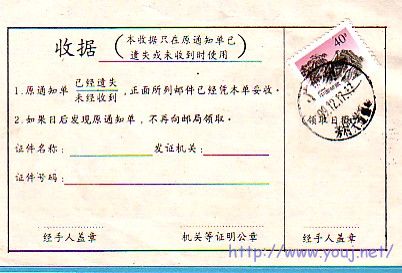 收据
（本收据只在原通知单已
遗失或未收到时使用）
40分
1.原通知单 已经遗失
未经收到
，正面所列邮件已经凭本单妥收。
2.如果日后发现原通知单，不再向邮局领取。
证件名称：
发证机关：
证件号码：
领班日
经手人盖章
机关等证明公章
经手人盖章
http://www.youj.net/